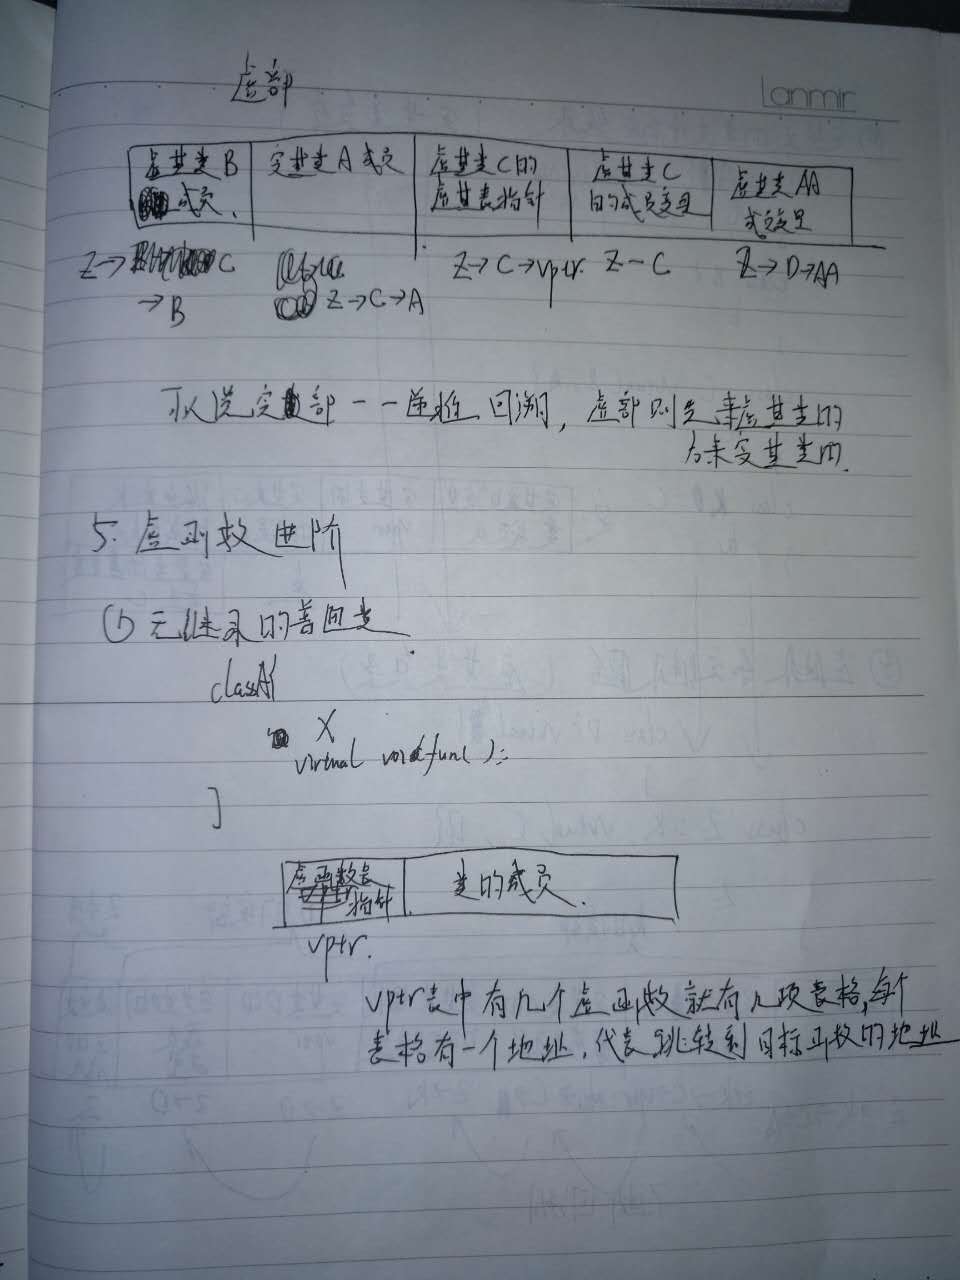 虚部
Lanmir
虚基类B 实基类A成员 虚基类C的 虚基类C 虚基类AA
成员. 虚基表指针 的成员变量 成员变量
Z→ C Z→C→vptr. Z-C Z→D→AA
→B Z→C→A
可以说实部--递推 回溯, 虚部则先来虚基类的
后来实基类的.
5. 虚函数进阶
① 无继承的普通类
class A{
X
virtual void func();
}
虚函数表 类的成员.
指针
vptr.
vptr表中有几个虚函数就有几项表格,每个
表格有一个地址,代表跳转到目标函数的地址